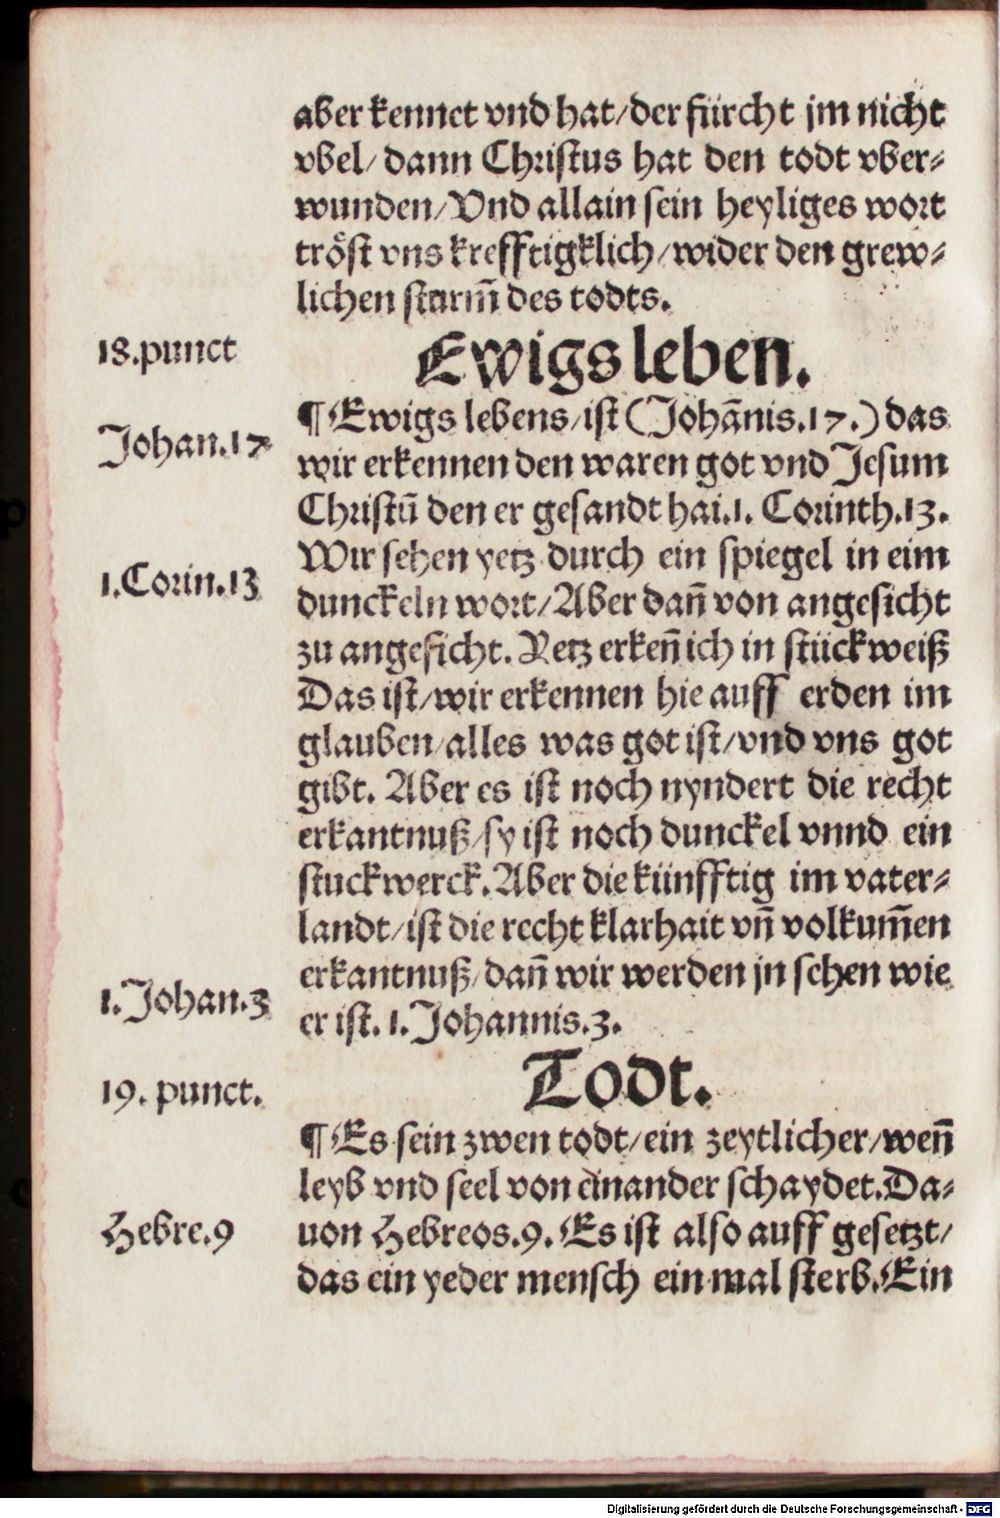 aber kennet vnd hat/der fürcht jm nicht
vbel/ dann Christus hat den todt vber⸗
wunden/Vnd allain sein heyliges wort
tröst vns krefftigklich/wider den grew⸗
lichen sturm̃ des todts.
18.punct
Ewigs leben.
¶Ewigs lebens/ist (Johãnis.17.) das
Johan.17
wir erkennen den waren got vnd Jesum
Christũ den er gesandt hai.1. Corinth.13.
Wir sehen yetz durch ein spiegel in eim
1.Corin.13
dunckeln wort/Aber dañ von angesicht
zu angesicht. Yetz erkeñ ich in stückweiß
Das ist/wir erkennen hie auff erden im
glauben/alles was got ist/vnd vns got
gibt. Aber es ist noch nyndert die recht
erkantnuß/sy ist noch dunckel vnnd ein
stuckwerck.Aber die künfftig im vater⸗
landt/ist die recht klarhait vñ volkum̃en
erkantnuß/dañ wir werden jn sehen wie
1.Johan.3
er ist. 1.Johannis.3.
19. punct.
Todt.
¶Es sein zwen todt/ein zeytlicher/weñ
leyb vnd seel von einander schaydet.Da⸗
Hebre.9
uon Hebreos.9.Es ist also auff gesetzt/
das ein yeder mensch ein mal sterb.Ein
Digitalisierung gefördert durch die Deutsche Forschungsgemeinschaft - DFG